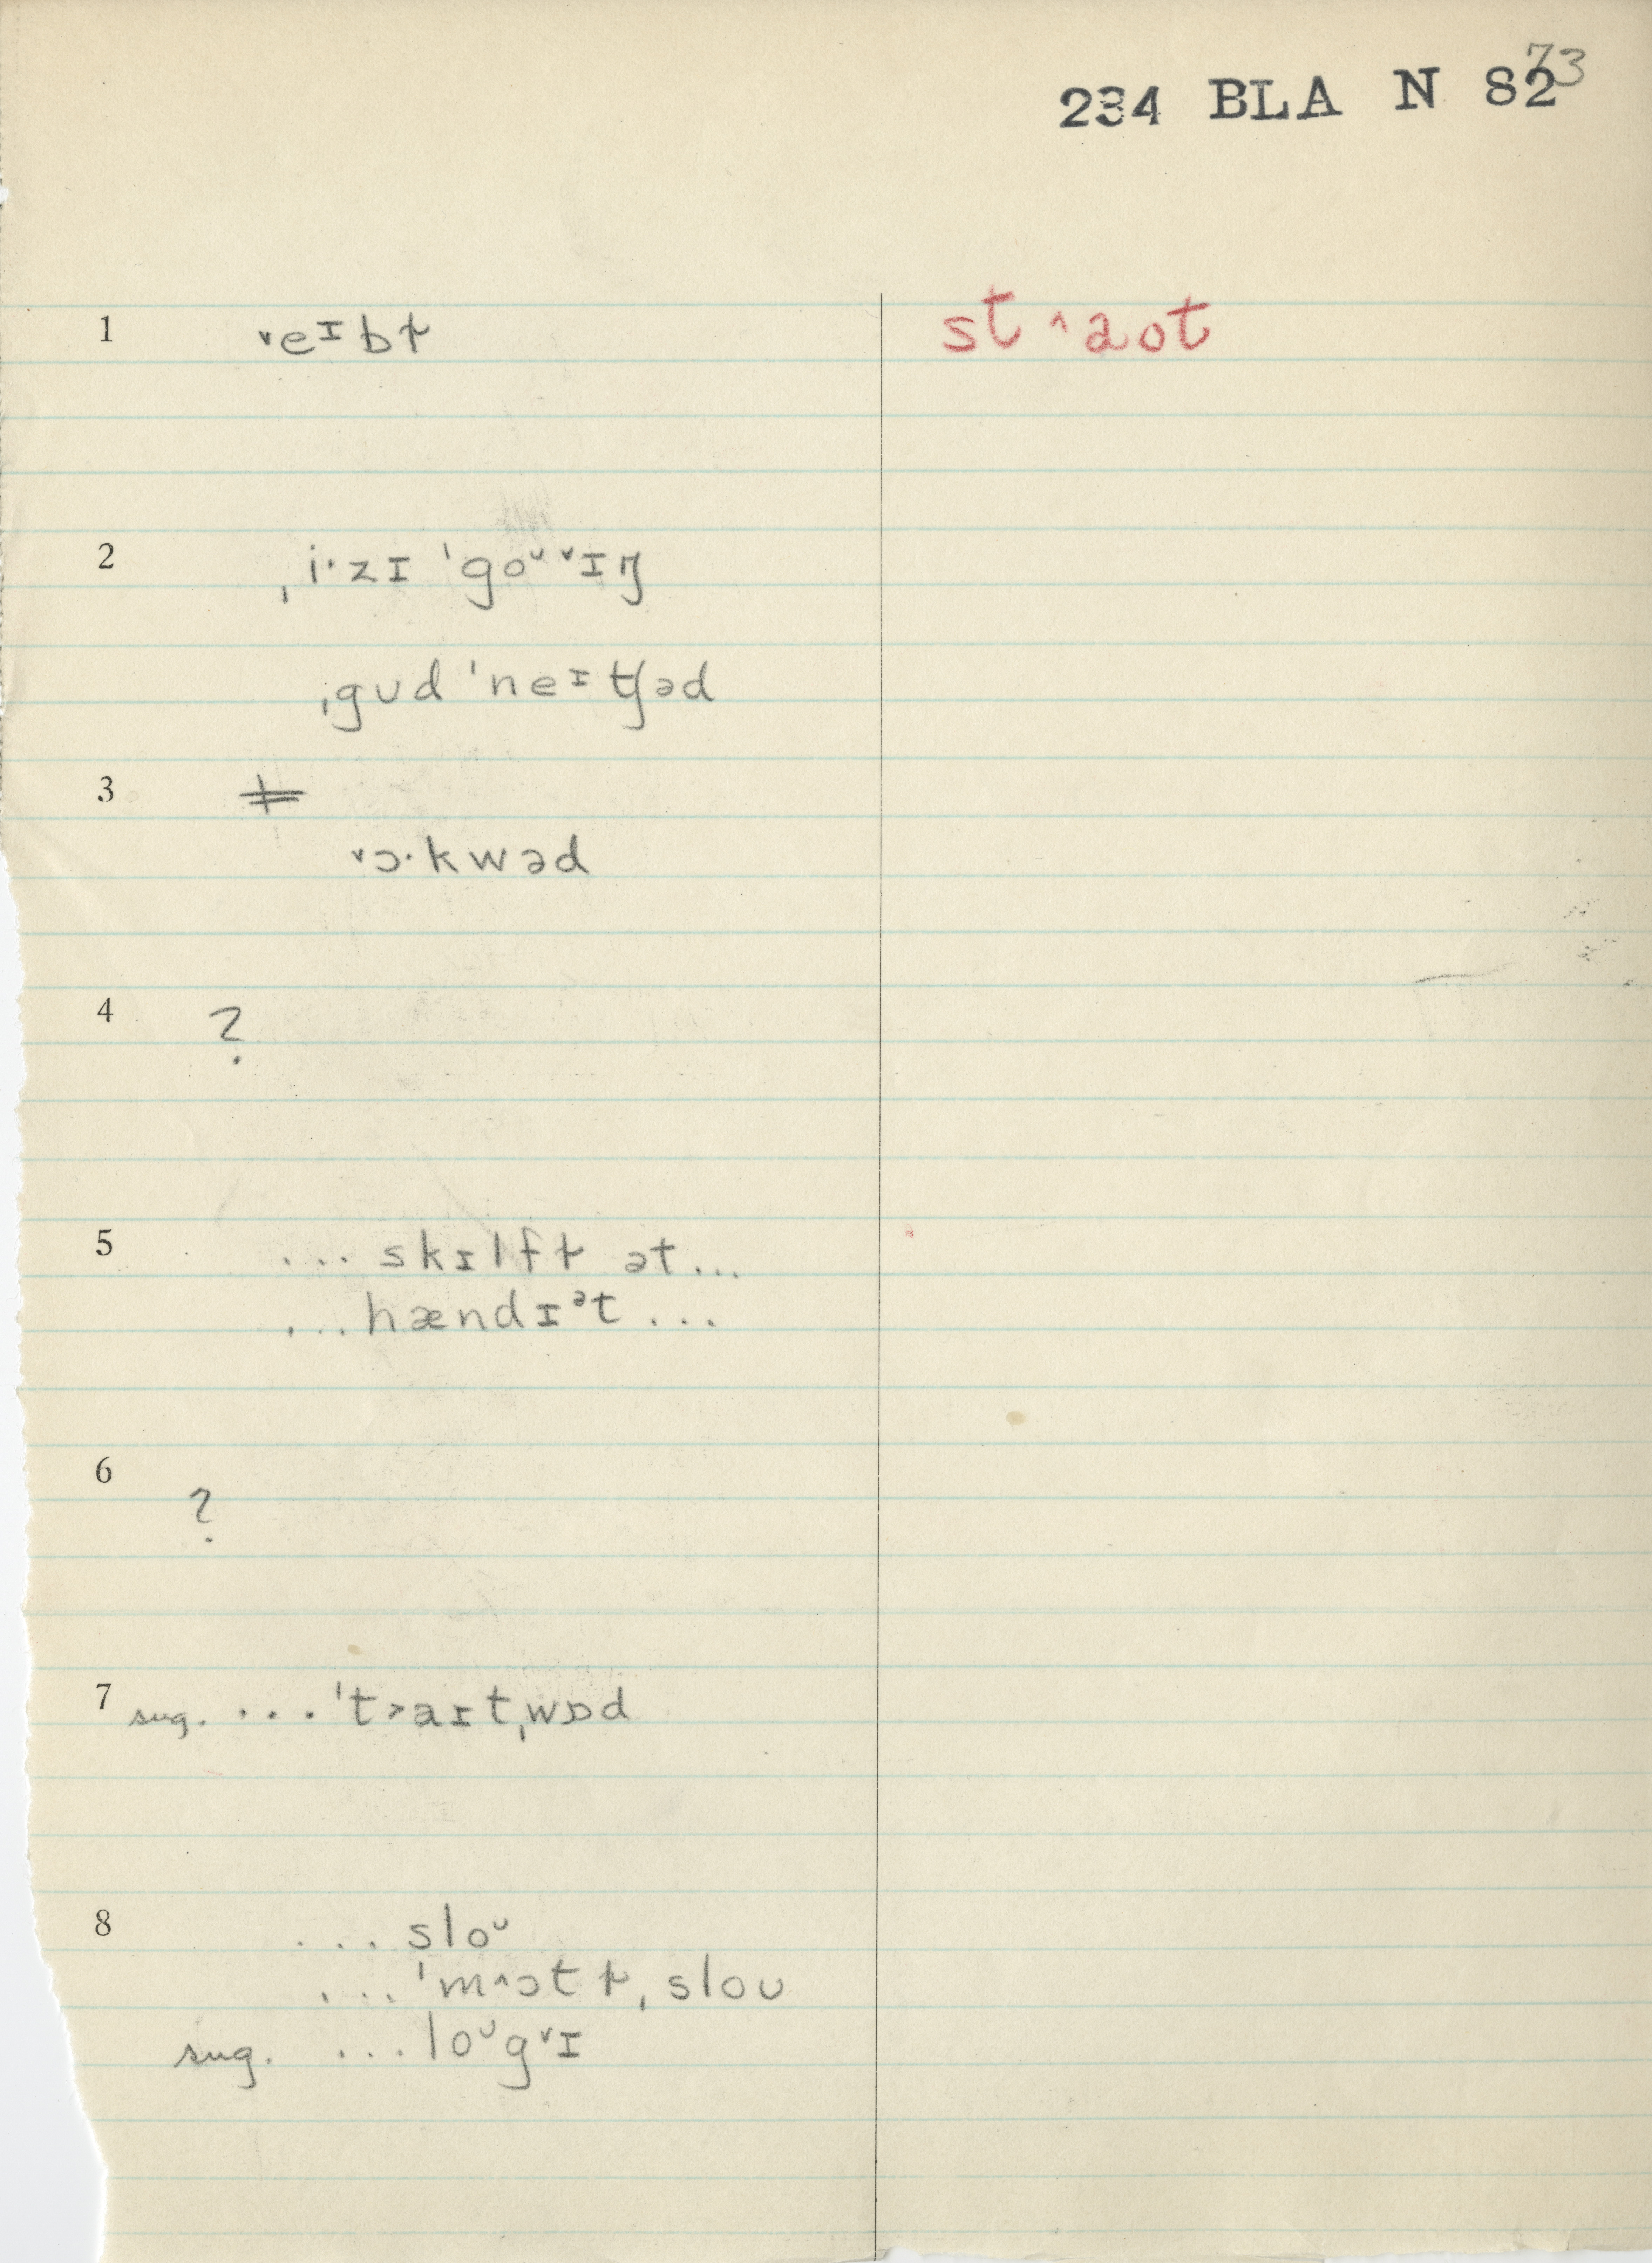 73
234 BLA N 82
1 ˅eɪbɫ st ˄aot
2 ˌi·zɪ ˈgoᶷ ˅ɪŋ
ˌgʊd ˈneɪtʃəd
3
˅ɔ·kwəd
4 ?
5 ... skɪlfɫ ət...
...hændɪᵊt...
6 ?
7 sug. ...ˈt˃aɪtˌwɒd
8 ...sloᶷ
...ˈm˄ɔtɫˌsloʊ
sug. ...loᶷg˅ɪ